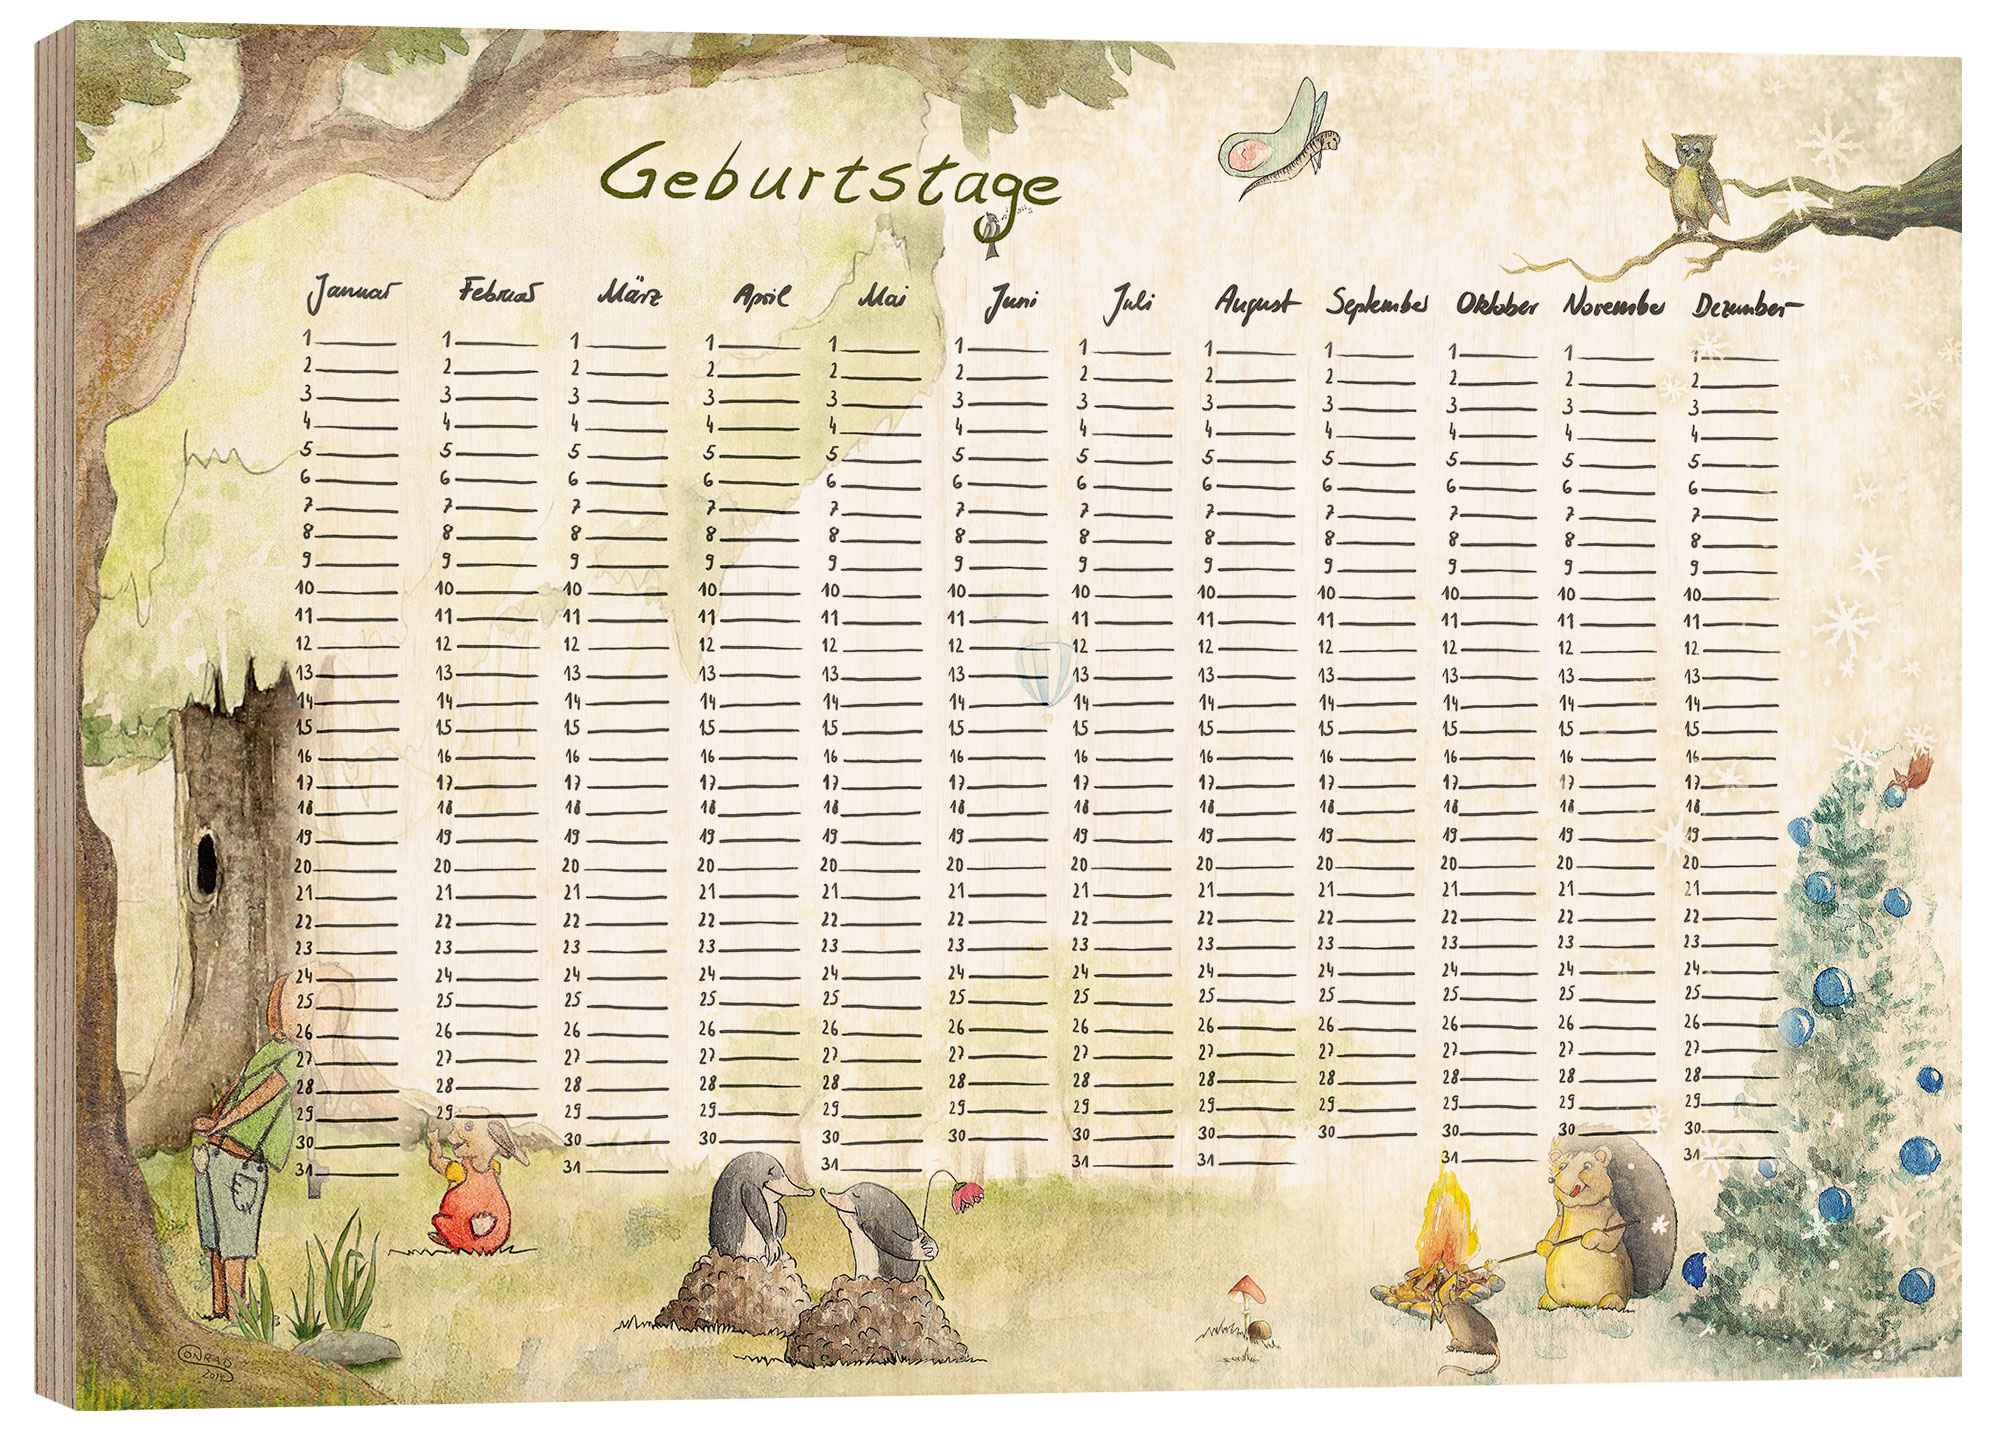 Geburtstage
Januar Februar März April Mai Juni Juli August September Oktober November Dezember
1 1 1 1 1 1 1 1 1 1 1 1
2 2 2 2 2 2 2 2 2 2 2 2
3 3 3 3 3 3 3 3 3 3 3 3
4 4 4 4 4 4 4 4 4 4 4 4
5 5 5 5 5 5 5 5 5 5 5 5
6 6 6 6 6 6 6 6 6 6 6 6
7 7 7 7 7 7 7 7 7 7 7 7
8 8 8 8 8 8 8 8 8 8 8 8
9 9 9 9 9 9 9 9 9 9 9 9
10 10 10 10 10 10 10 10 10 10 10 10
11 11 11 11 11 11 11 11 11 11 11 11
12 12 12 12 12 12 12 12 12 12 12 12
13 13 13 13 13 13 13 13 13 13 13 13
14 14 14 14 14 14 14 14 14 14 14 14
15 15 15 15 15 15 15 15 15 15 15 15
16 16 16 16 16 16 16 16 16 16 16 16
17 17 17 17 17 17 17 17 17 17 17 17
18 18 18 18 18 18 18 18 18 18 18 18
19 19 19 19 19 19 19 19 19 19 19 19
20 20 20 20 20 20 20 20 20 20 20 20
21 21 21 21 21 21 21 21 21 21 21 21
22 22 22 22 22 22 22 22 22 22 22 22
23 23 23 23 23 23 23 23 23 23 23 23
24 24 24 24 24 24 24 24 24 24 24 24
25 25 25 25 25 25 25 25 25 25 25 25
26 26 26 26 26 26 26 26 26 26 26 26
27 27 27 27 27 27 27 27 27 27 27 27
28 28 28 28 28 28 28 28 28 28 28 28
29 29 29 29 29 29 29 29 29 29 29 29
30 30 30 30 30 30 30 30 30 30 30
31 31 31 31 31 31 31
CONRAD
2014